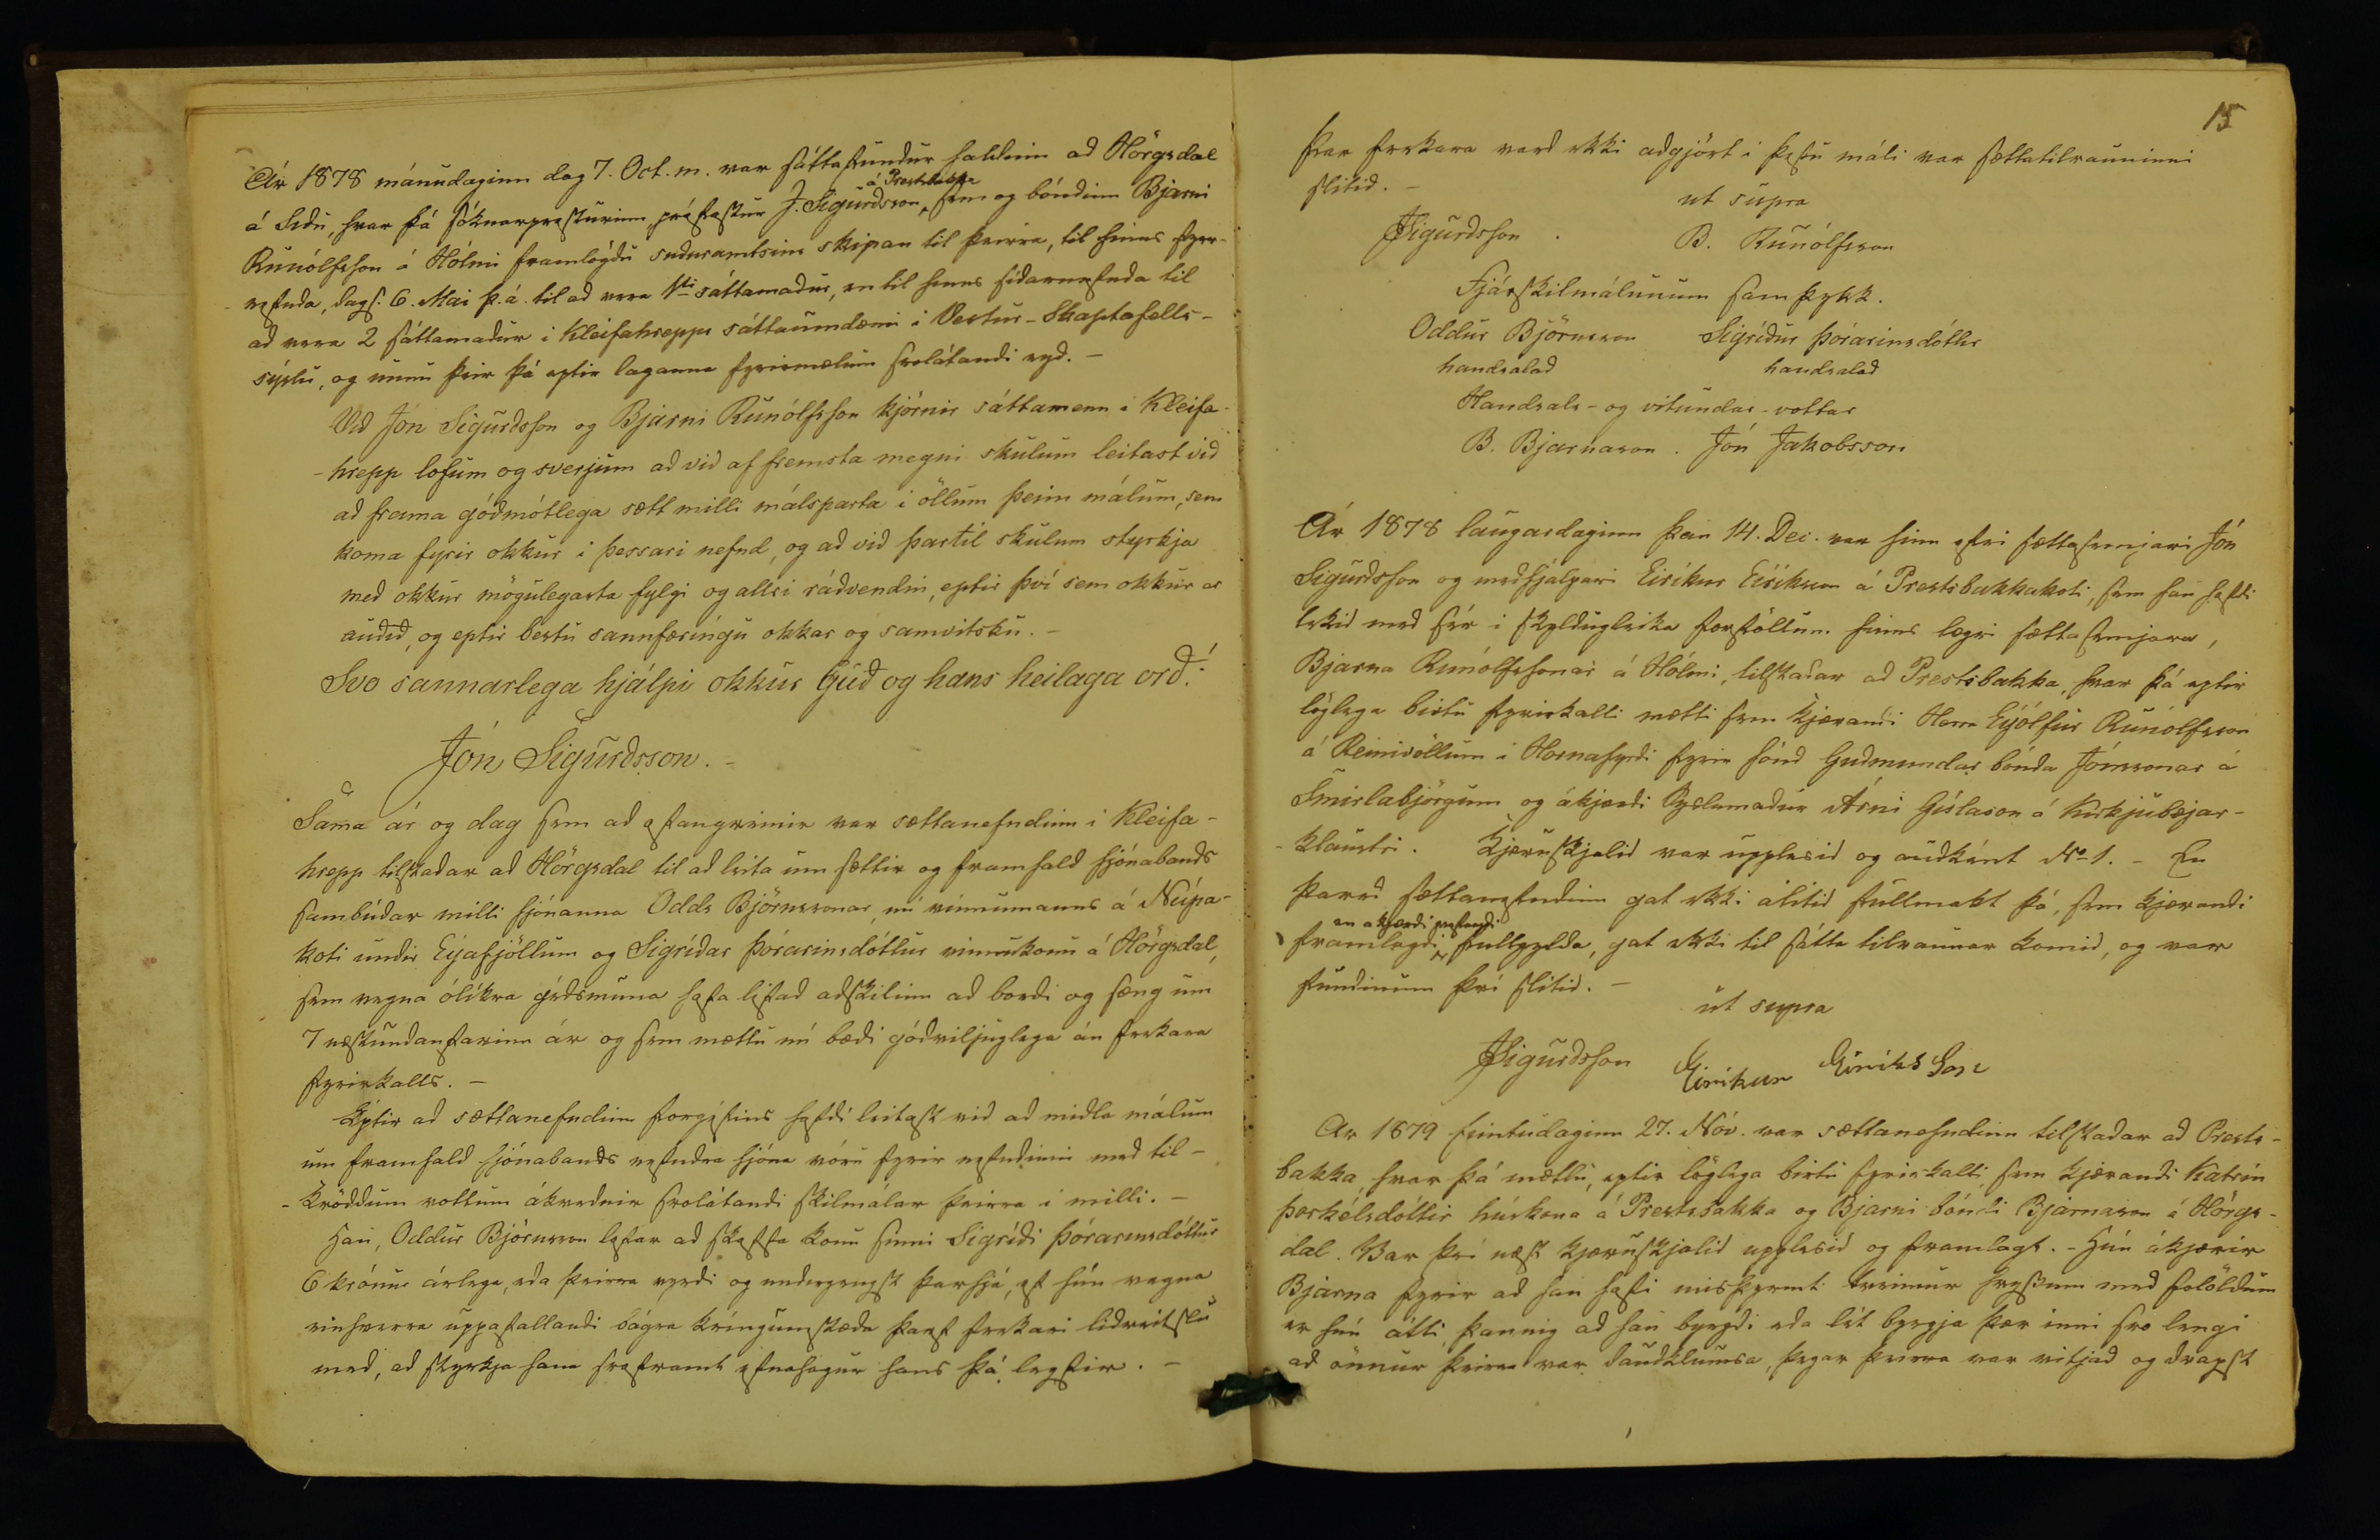 Ár 1878 mánudaginn dag 7. Oct. m. var sáttafundur haldinn að Hörgsdal
á Prestsbakka
á Síðu, hvar þá sóknarpresturinn prófastur J. Sigurðsson, sem og bóndinn Bjarni
Runólfsson á Hólmi framlögðu suðuramtsins skipan til þeirra, til hins fyrr-
nefnda, dags. 6. Mai þ. á. til að vera 1sti sáttamaður, en til hins síðarnefnda til
að vera 2 sáttamaður i Kleifahrepps sáttaumdæmi i Vestur-Skaptafells-
sýslu, og unnu þeir þá eptir laganna fyrirmælum svolátandi eyð. -
Við Jón Sigurðsson og Bjarni Runólfsson kjörnir sáttamenn i Kleifa-
-hrepp lofum og sverjum að við af fremsta megni skulum leitast við
að frama góðmótlega sætt milli málsparta i öllum þeim málum, sem
koma fyrir okkur i þessari nefnd, og að við þartil skulum styrkja
með okkur mögulegasta fylgi og allri ráðvendni, eptir því sem okkur er
auðið, og eptir bestu sannfæringu okkar og samvitsku. -
Svo sannarlega hjálpi okkur Guð og hans heilaga orð!
Jón Sigurðsson. -
Sama ár og dag sem að ofangreinir var sættanefndinn i Kleifa-
hrepp tilstaðar að Hörgsdal til að leita um sættir og framhald hjónabands
sambúðar milli hjónanna Odds Björnssonar, nú vinnumanns á Núpa-
koti undir Eyjafjöllum og Sigríðar Þórarinsdóttur vinnukonu á Hörgsdal,
sem vegna ólíkra geðsmuna hafa lifað aðskilinn að borði og sæng um
7 næstundanfarinn ár og sem mættu nú bæði góðviljuglega án frekara
fyrirkalls. -
Eptir að sættanefndinn forgéfins hafði leitast við að miðla málum
um framhald hjónabands nefndra hjóna vóru fyrir nefndinni með til-
-kvöddum vottum ákveðnir svolátandi skilmálar þeirra i milli. -
Hann, Oddur Björnsson lofar að skaffa konu sinni Sigríði Þórarinsdóttur
6 krónur árlega, eða þeirra verði og undirgengst þarhjá, ef hún vegna
einhverra uppáfallandi bágra kringumstæða þarf frekari liðveitslu
með, að styrkja hana svoframt efnahagur hans þá leyfir. -
15
Þar frekara varð ekki aðgjört i þessu máli var sættatilrauninni
slitið. -
ut supra
JSigurðsson. B. Runólfsson
Fjárskilmálunum samþykk.
Oddur Björnsson Sigríður Þórarinsdóttir
handsalað handsalað
Handsals- og vitundar-vottar
B. Bjarnason. Jón Jakobsson
Ár 1878 laugardaginn þan 14. Dec. var hinn efri sættasemjari Jón
Sigurðsson og meðhjálpari Eiríkur Eiríksson á Prestsbakkakoti, sem han hafði
tekið með sér i skyldugleika forföllun hins lægri sættasemjara,
Bjarna Runólfssonar á Hólmi, tilstaðar að Prestsbakka, hvar þá eptir
löglega birtu fyrirkalli mætti sem kjærandi Herra Eyólfur Runólfsson
á Reinivöllum i Hornafyrði fyrir hönd Guðmundar bónda Jónssonar á
Smirlabjörgum og ákjærði Syslumaður Árni Gíslason á Kirkjubæjar-
-klaustri. Kjæruskjalið var upplesið og auðként No 1. - En
þareð sættanefndinn gat ekki álitið fullmakt þá, sem kjærandi
en ákjærði
framlagði, fullgylda, gat ekki til sátta tilraunar komið, og var
fundinum því slitið. -
ut supra
JSigurðsson Eirikur Eiriks Son
Ár 1879 fimtudaginn 27. Nóv. var sættanefndinn tilstaðar að Prests-
bakka, hvar þá mættu, eptir löglega birtu fyrirkalli sem kjærandi Katrín
Þorkélsdóttir húskona á Prestsbakka og Bjarni bóndi Bjarnason á Hörgs-
dal. Var því næst kjæruskjalið upplesið og framlagt. - Hún ákjærir
Bjarna fyrir að han hafi misþyrmt tveimur hryssum með folöldum
er hún átti, þannig að han byrgði eða lét byrgja þær inni svo lengi
að önnur þeirra var dauðklumsa, þegar þeirra var vitjað og drapst